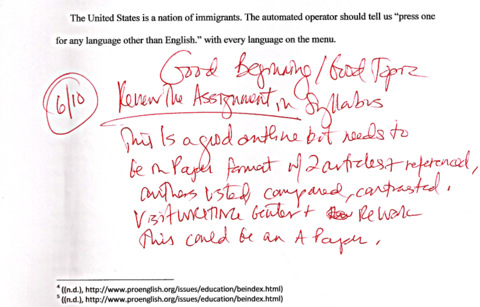 The United States is a nation of immigrants. The automated operator should tell us “press one
for any language other than English.” with every language on the menu.
Good Beginning/Good Topic
6/10
Review The Assignment in Syllabus
This is a good outline but needs to
be in Paper format w/ 2 articles + referenced,
authors listed, compared, contrasted.
Visit Writing Center + Rework
This could be an A Paper.
4 ((n.d.), http://www.proenglish.org/issues/education/beindex.html)
5 ((n.d.), http://www.proenglish.org/issues/education/beindex.html)